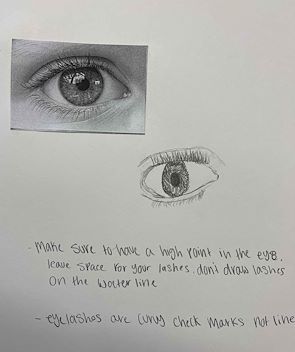 - Make sure to have a high point in the eye.
leave space for your lashes. don't draw lashes
on the water line
- eyelashes are curvy check marks not line